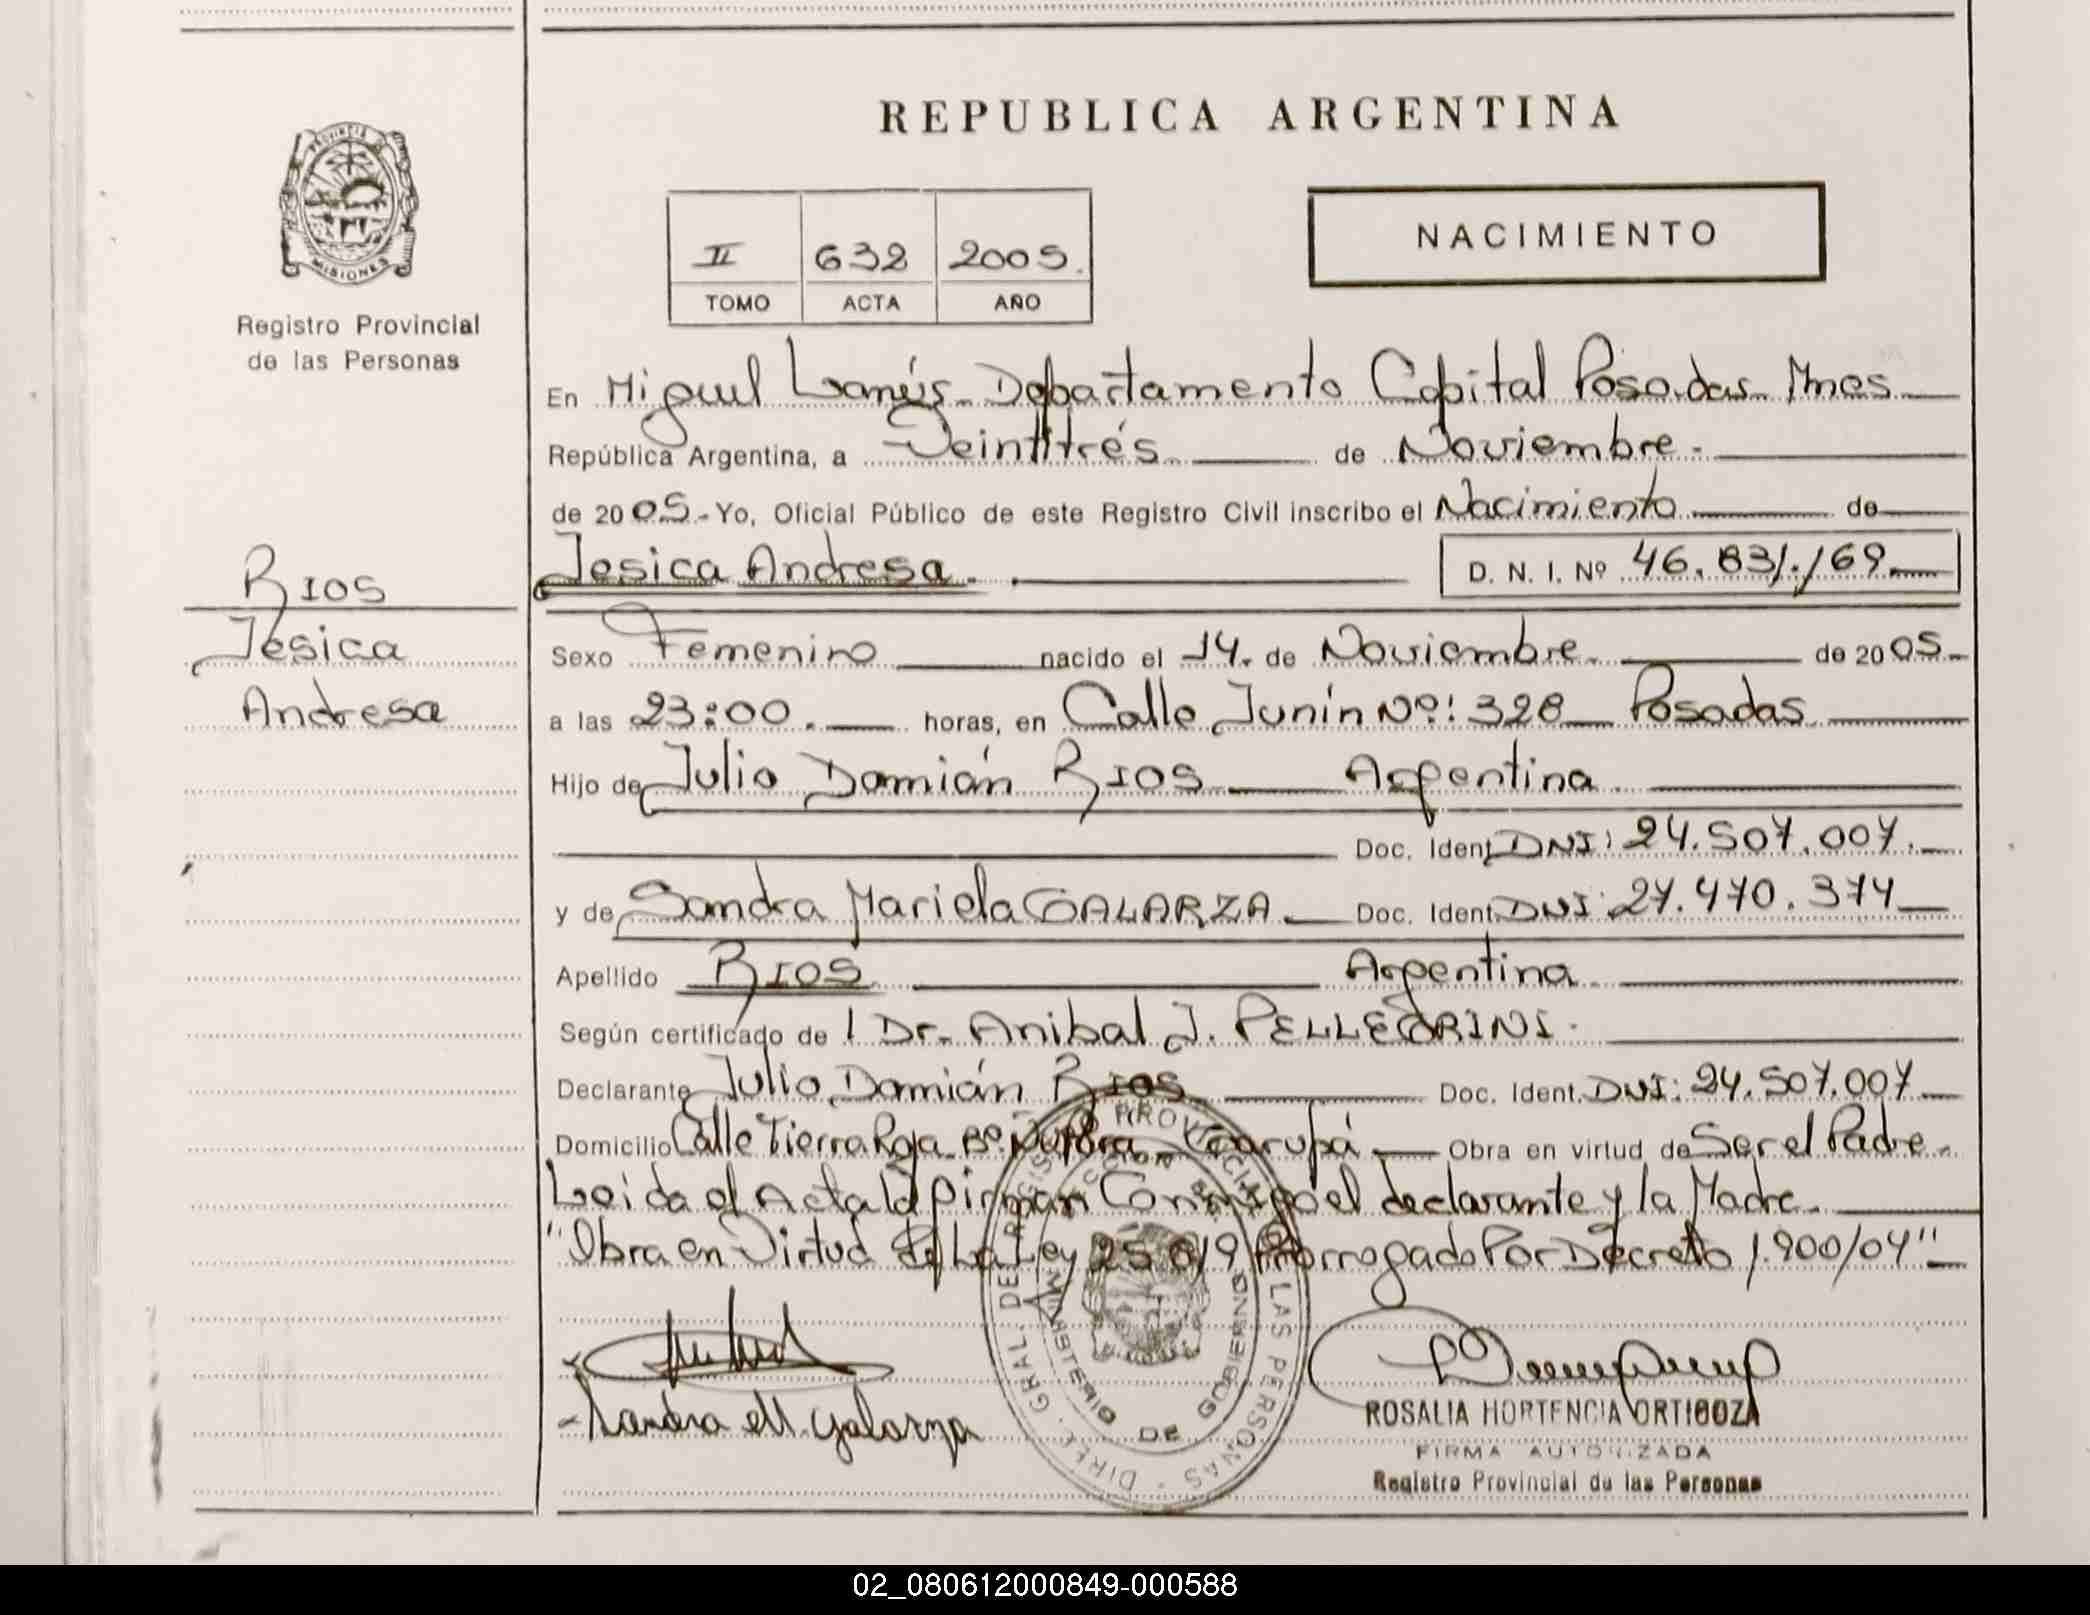 REPUBLICA ARGENTINA
PROVINCIA
MISIONES
Registro Provincial
de las Personas
II 632 2005.
TOMO ACTA AÑO
NACIMIENTO
En Miguel Lanús - Departamento Capital Posadas - Mnes
República Argentina, a Veintitrés de Noviembre.
de 2005.- Yo, Oficial Público de este Registro Civil inscribo el Nacimiento de
Jesica Andresa. D. N. I. Nº 46.831.169
RIOS
Jesica
Andresa
Sexo Femenino nacido el 14. de Noviembre. de 2005.
a las 23:00. horas, en Calle Junín Nº: 328 Posadas
Hijo de Julio Damián RIOS Argentina
Doc. Ident. DNI: 24.507.007.
y de Sandra Mariela GALARZA Doc. Ident. DNI: 27.470.374
Apellido RIOS Argentina
Según certificado de l Dr. Anibal J. PELLEGRINI.
Declarante Julio Damián RIOS Doc. Ident. DNI: 24.507.007
Domicilio Calle Tierra Roja Bº Ñu Pora - Garupá Obra en virtud de Ser el Padre.
Leida el Acta la firman Conmigo el declarante y la Madre.
"Obra en Virtud de La Ley 25.819 Prorrogado Por Decreto 1.900/04"
DIREC. GRAL. DEL REGISTRO PROVINCIAL DE LAS PERSONAS
MINISTERIO DE GOBIERNO
Sandra M. Galarza
ROSALIA HORTENCIA ORTIGOZA
FIRMA AUTORIZADA
Registro Provincial de las Personas
02_080612000849-000588